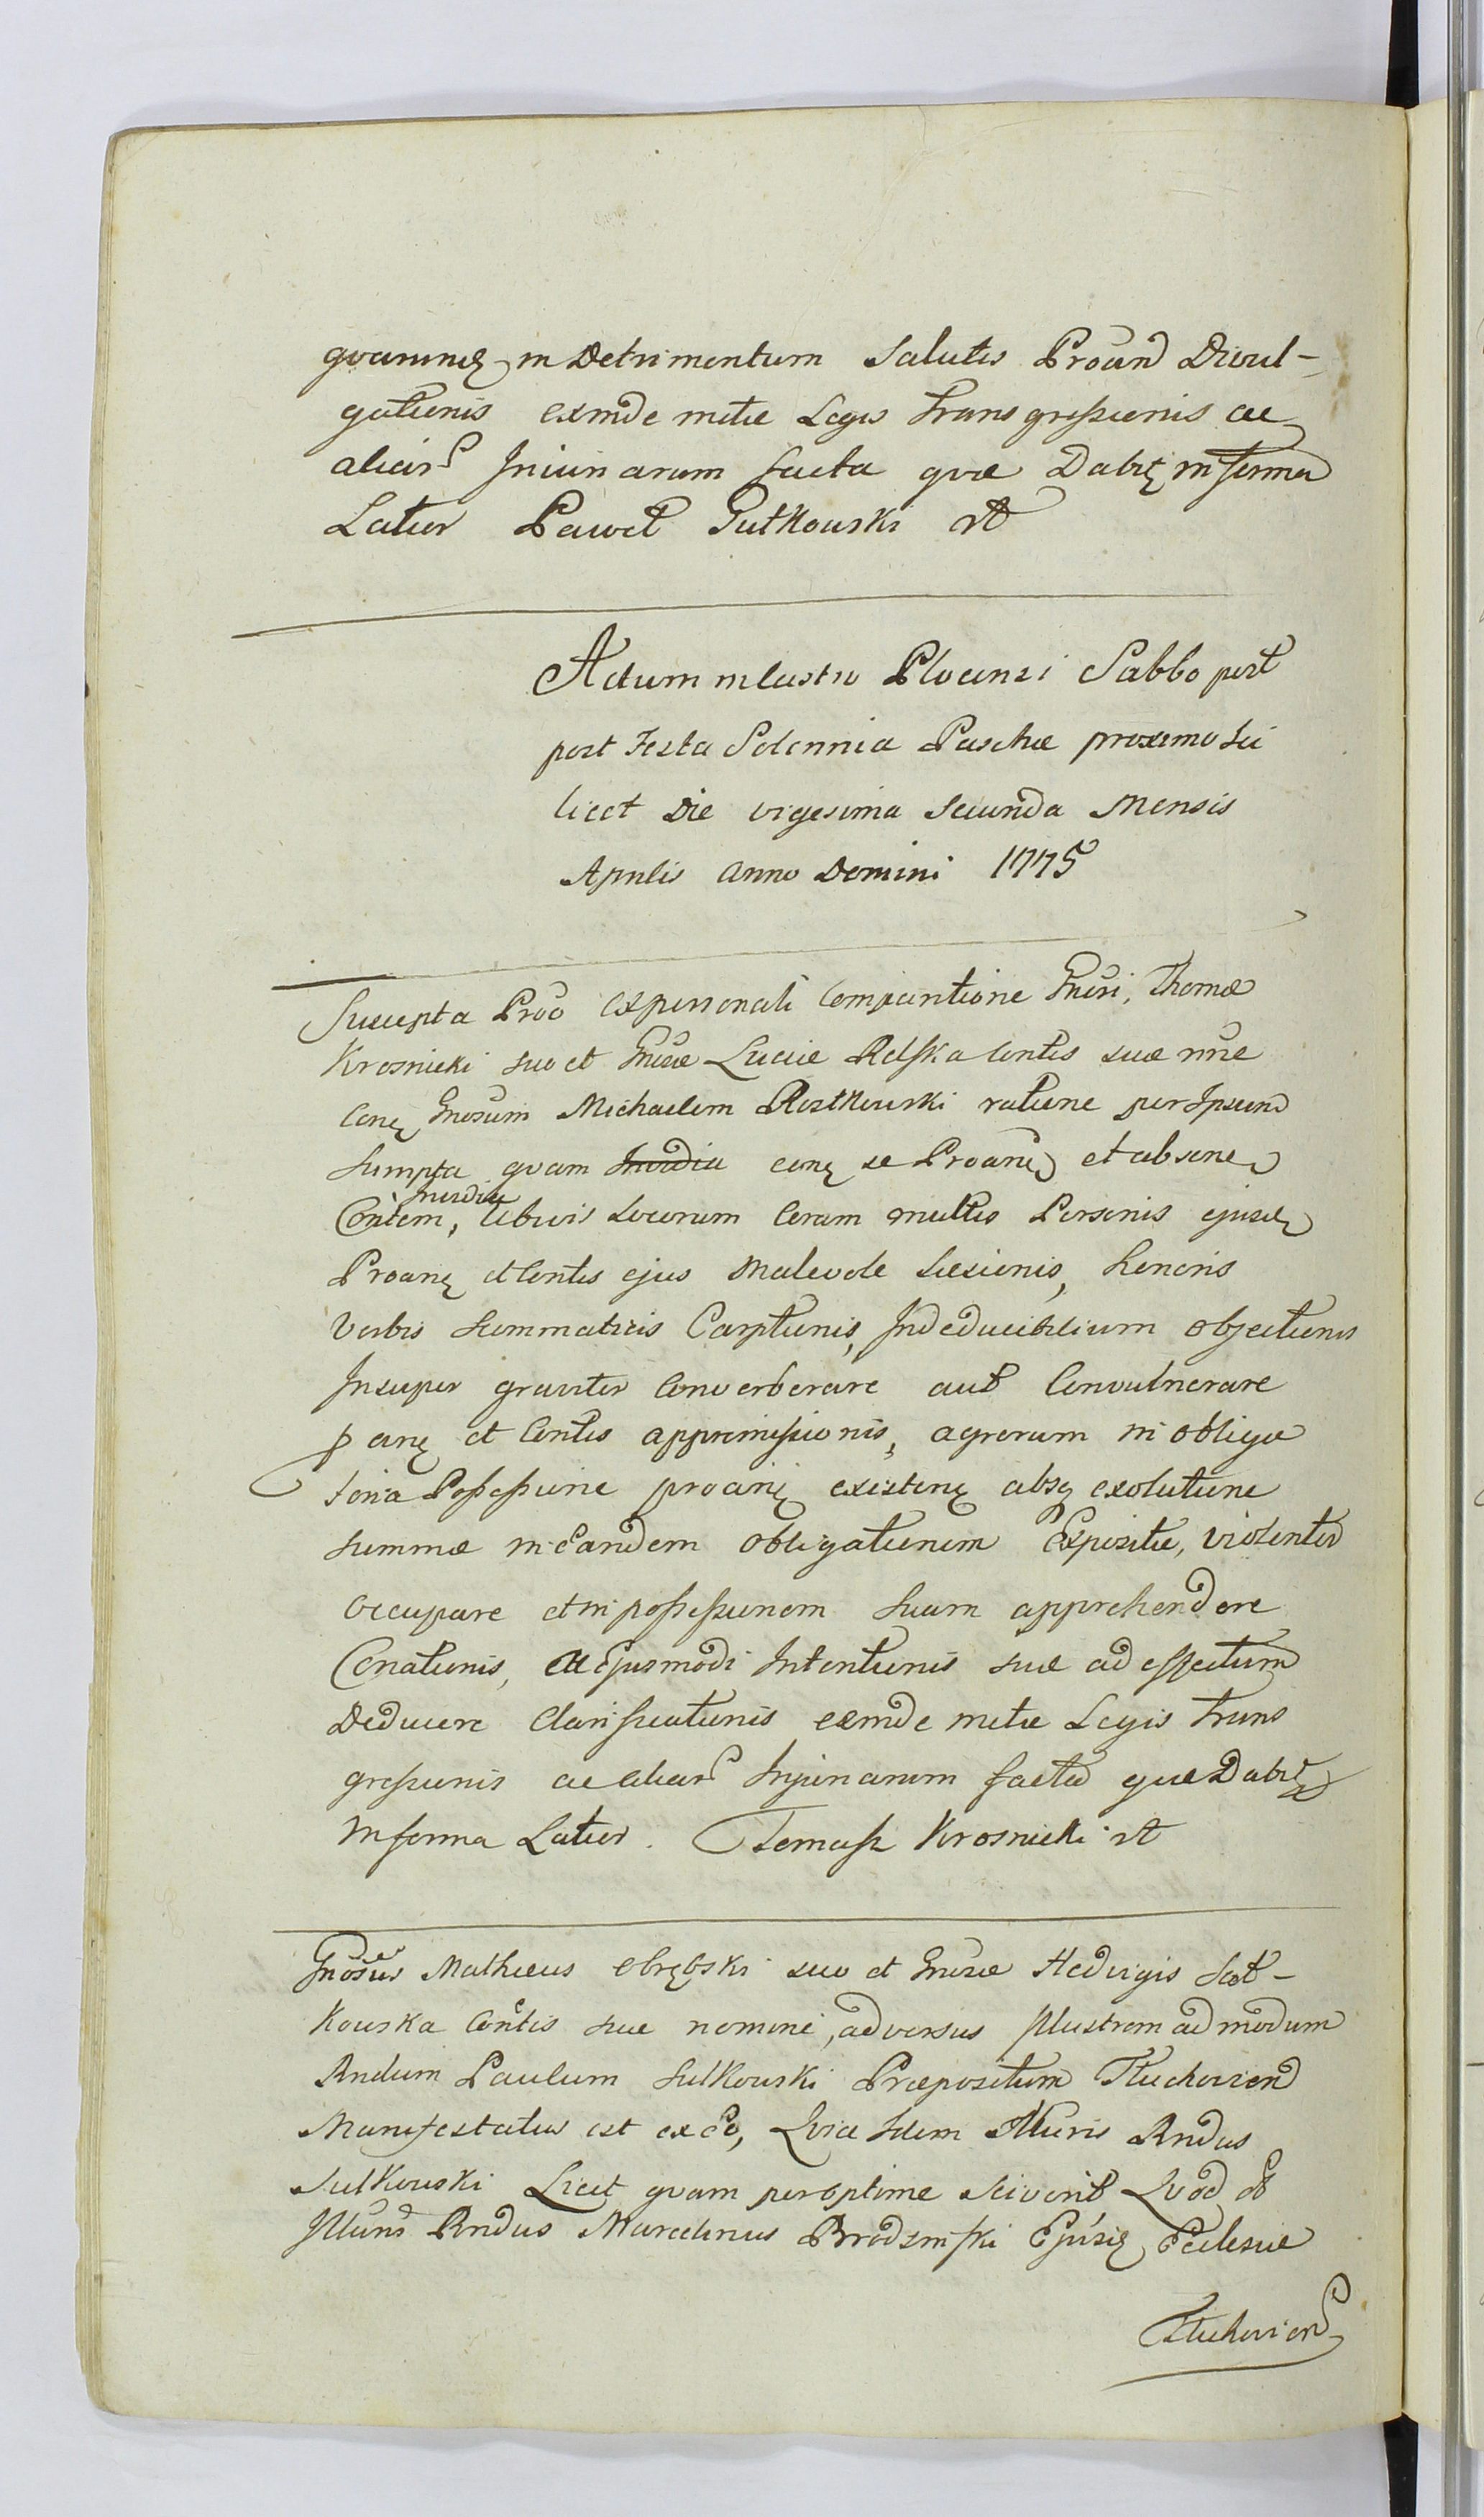 qvarumq in Detrimentum Salutis Proand Divul-
gationis exinde metæ Legis transgressionis ac
aliar Iniuriarum facta qvæ Dabit in forma
Latior Paweł Gutkowski rt
Actum in Castro Plocensi Sabbo post
post Festa Solennia Paschæ proximo Sci
licet Die vigesima secunda Mensis
Aprilis Anno Domini 1775
Suscepta Pro ex personali Comparitione Gnosi, Thomæ
Krosnicki suo et Gnosæ Luciæ Relska Contis suæ nne
Conq Gnosum Michaelem Rostkowski ratione per Ipsum
Sumpta qvam Invidia conq se Proanq et absone
Invidia
Contem, Ubivis Locorum Coram multis Personis ejusd
Proanq et Contis ejus Malevole Læsionis, honoris
Verbis Summatricis Carptionis, Indeducibilium objectionis
Insuper graviter Converberare aut Convulnerare
panq et Contis appromissionis, agrorum in obliga
toria Possessione proanq existenq absq exolutione
summæ in Eandem Obligationem Expositæ, violenter
occupare et in possessionem suam apprehendere
Conationis, ac Ejusmodi Intentionis suæ ad effectum
Deducere Clarificationis exinde metæ Legis trans
gressionis ac aliar Injuriarum facta quæ Dabit
in forma Latior. Tomasz Krosnicki rt
Gnosus Mathæus Obrębski suo et Gnosæ Hedvigis Sot-
kowska Contis suæ nomine, adversus Illustrem admodum
Rndum Paulum Sulkowski Præpositum Tłuchovien
Manifestatus est ex eo, Qvia Idem Illuris Rndus
Sulkowski Licet qvam peroptime sciverit Qvod
Illuris Rndus Marcelinus Brodzinski Ejusq Ecclesiæ
Tłuchovien